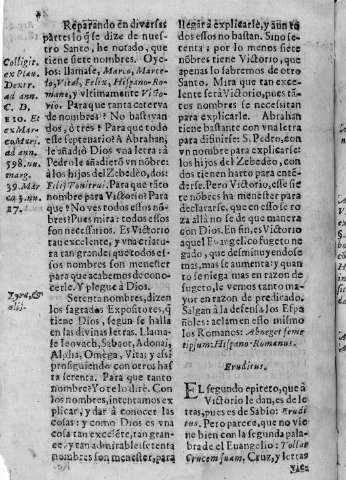 Reparando en diversas
partes lo q̃ se dize de nues-
tro Santo, he notado, que
tiene siete nombres. Oye-
los: llamase, Marco, Marce-
lo, Vital, Felix, Hispano-Ro-
mano, y vltimamente Victo-
rio. Para que tanta caterva
de nombres? No bastavan
dos, ò tres? Para que todo
este septenario? A Abrahan,
le añadiò Dios vna letra: à
Pedro le añadierõ vn nõbre:
à los hijos del Zebedèo, dos:
Filij Tonitrui. Para que tãto
nombre para Victorio? Para
que? No ves todos essos nõ-
bres? Pues mira: todos essos
son necessarios. Es Victorio
tan excelente, y vna criatura
tan grande; que todos es-
sos nombres son menester
para que acabemos de cono-
cerle. Y plegue à Dios.
Setenta nombres, dizen
los sagrados Expositores, q̃
tiene Dios, segun se halla
en las divinas letras. Llama-
se Ieovach, Sabaot, Adonai,
Alpha, Omèga, Vita; y assi
prosiguiendo con otros has
ta setenta. Para que tanto
nombre? Yo te lo dirè. Con
los nombres, intentamos ex-
plicar, y dar à conocer las
cosas: y como Dios es vna
cosa tan excelẽte, tan gran-
ce, y tan admirable setenta
nombres son menester, para
Colligit.
ex Plau.
Dextr.
ad ann.
C. D.
810. Et
ex Mar-
co Maxi.
ad ann.
598. nu.
marg.
39. Mar
ca 3. nu.
27.
llegar à explicarle, y aun to
dos essos no bastan. Sino se-
tenta: por lo menos siete
nõbres tiene Victorio, que
apenas lo sabremos de otro
Santo. Mira que tan exce-
lente serà Victorio, pues tã-
tos nombres se necessitan
para explicarle. Abrahan
tiene bastante con vna letra
para difinirse: S. Pedro, con
vn nombre para explicarse:
à los hijos del Zebedèo, con
dos tienen harto para enten-
derse. Pero Victorio, esse sie-
te nombres ha menester para
declararse, que en esso se ro-
za allà no se de que manera
con Dios. En fin, es Victorio
aquel Euangelico sugeto ne-
gado, que desminuyendose
mas, mas se aumenta: y quan
to se niega mas en razon de
sugeto, le vemos tanto ma-
yor en razon de predicado.
Salgan à la defensa los Espa
ñoles: aclam en esso mismo
los Romanos: Abneget seme
tipsum: Hispano-Romanus.
Eruditus.
EL segundo epiteto, que à
Victorio le dan, es de le-
tras, pues es de Sabio: Erudi
tus. Pero parece, que no vie
ne bien con la segunda pala-
bra de el Euangelio: Tollat
Crucem suam, Cruz, y letras